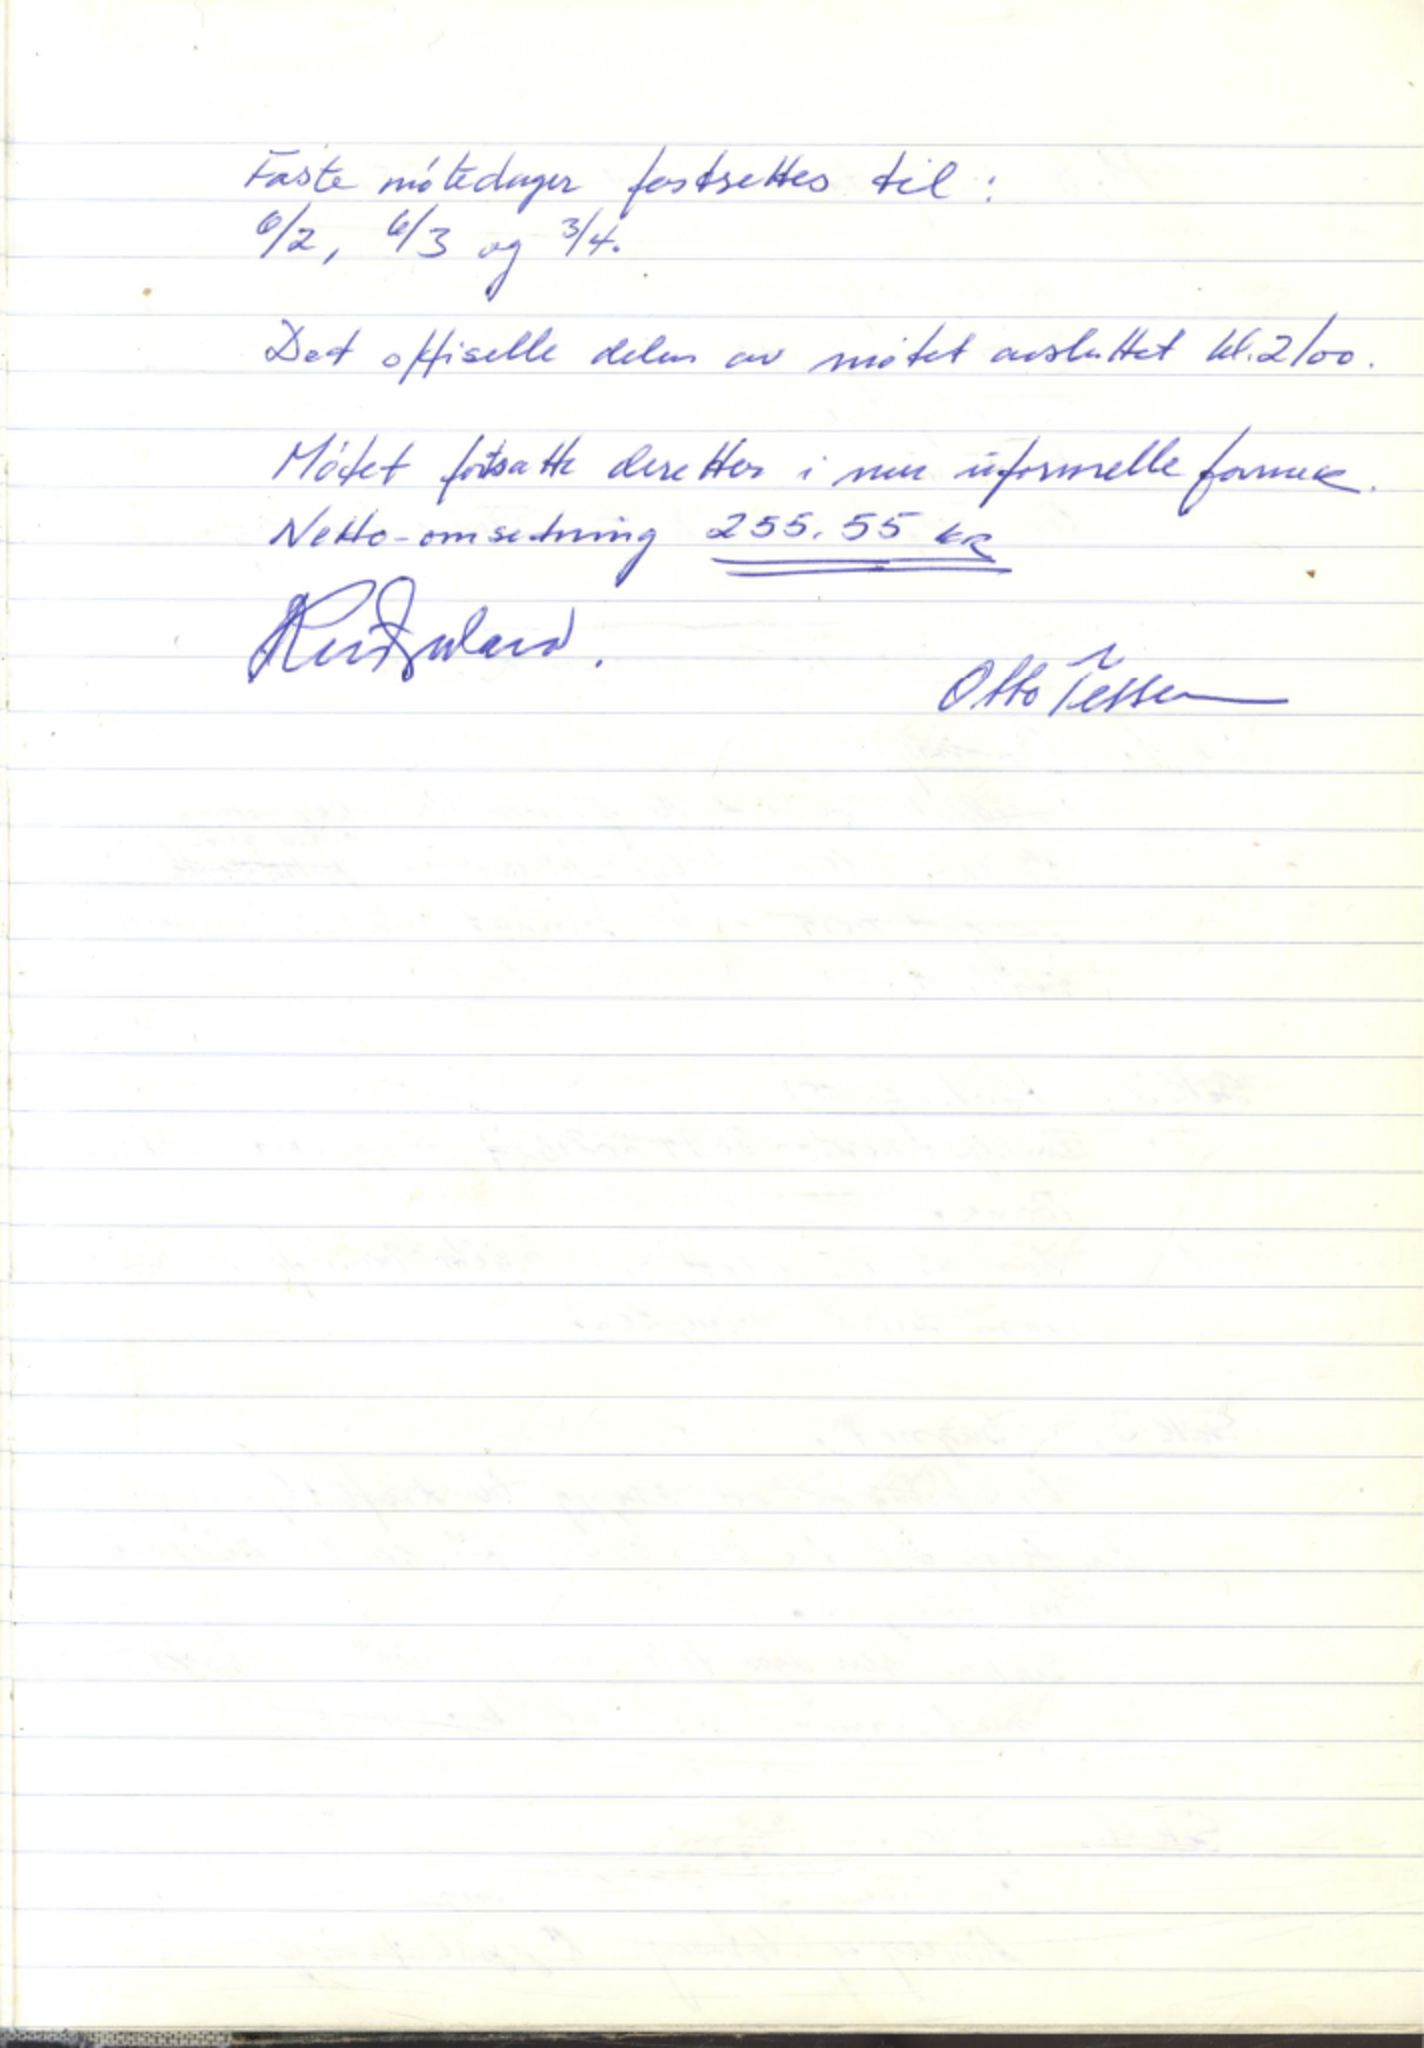 Faste møtedager fastsettes til:
6/2, 6/3 og 3/4.
Det offiselle delen av møtet avsluttet kl. 2100.
Møtet fortsatte deretter i mer uformelle former.
Netto-omsetning 255.55 kr
Otto